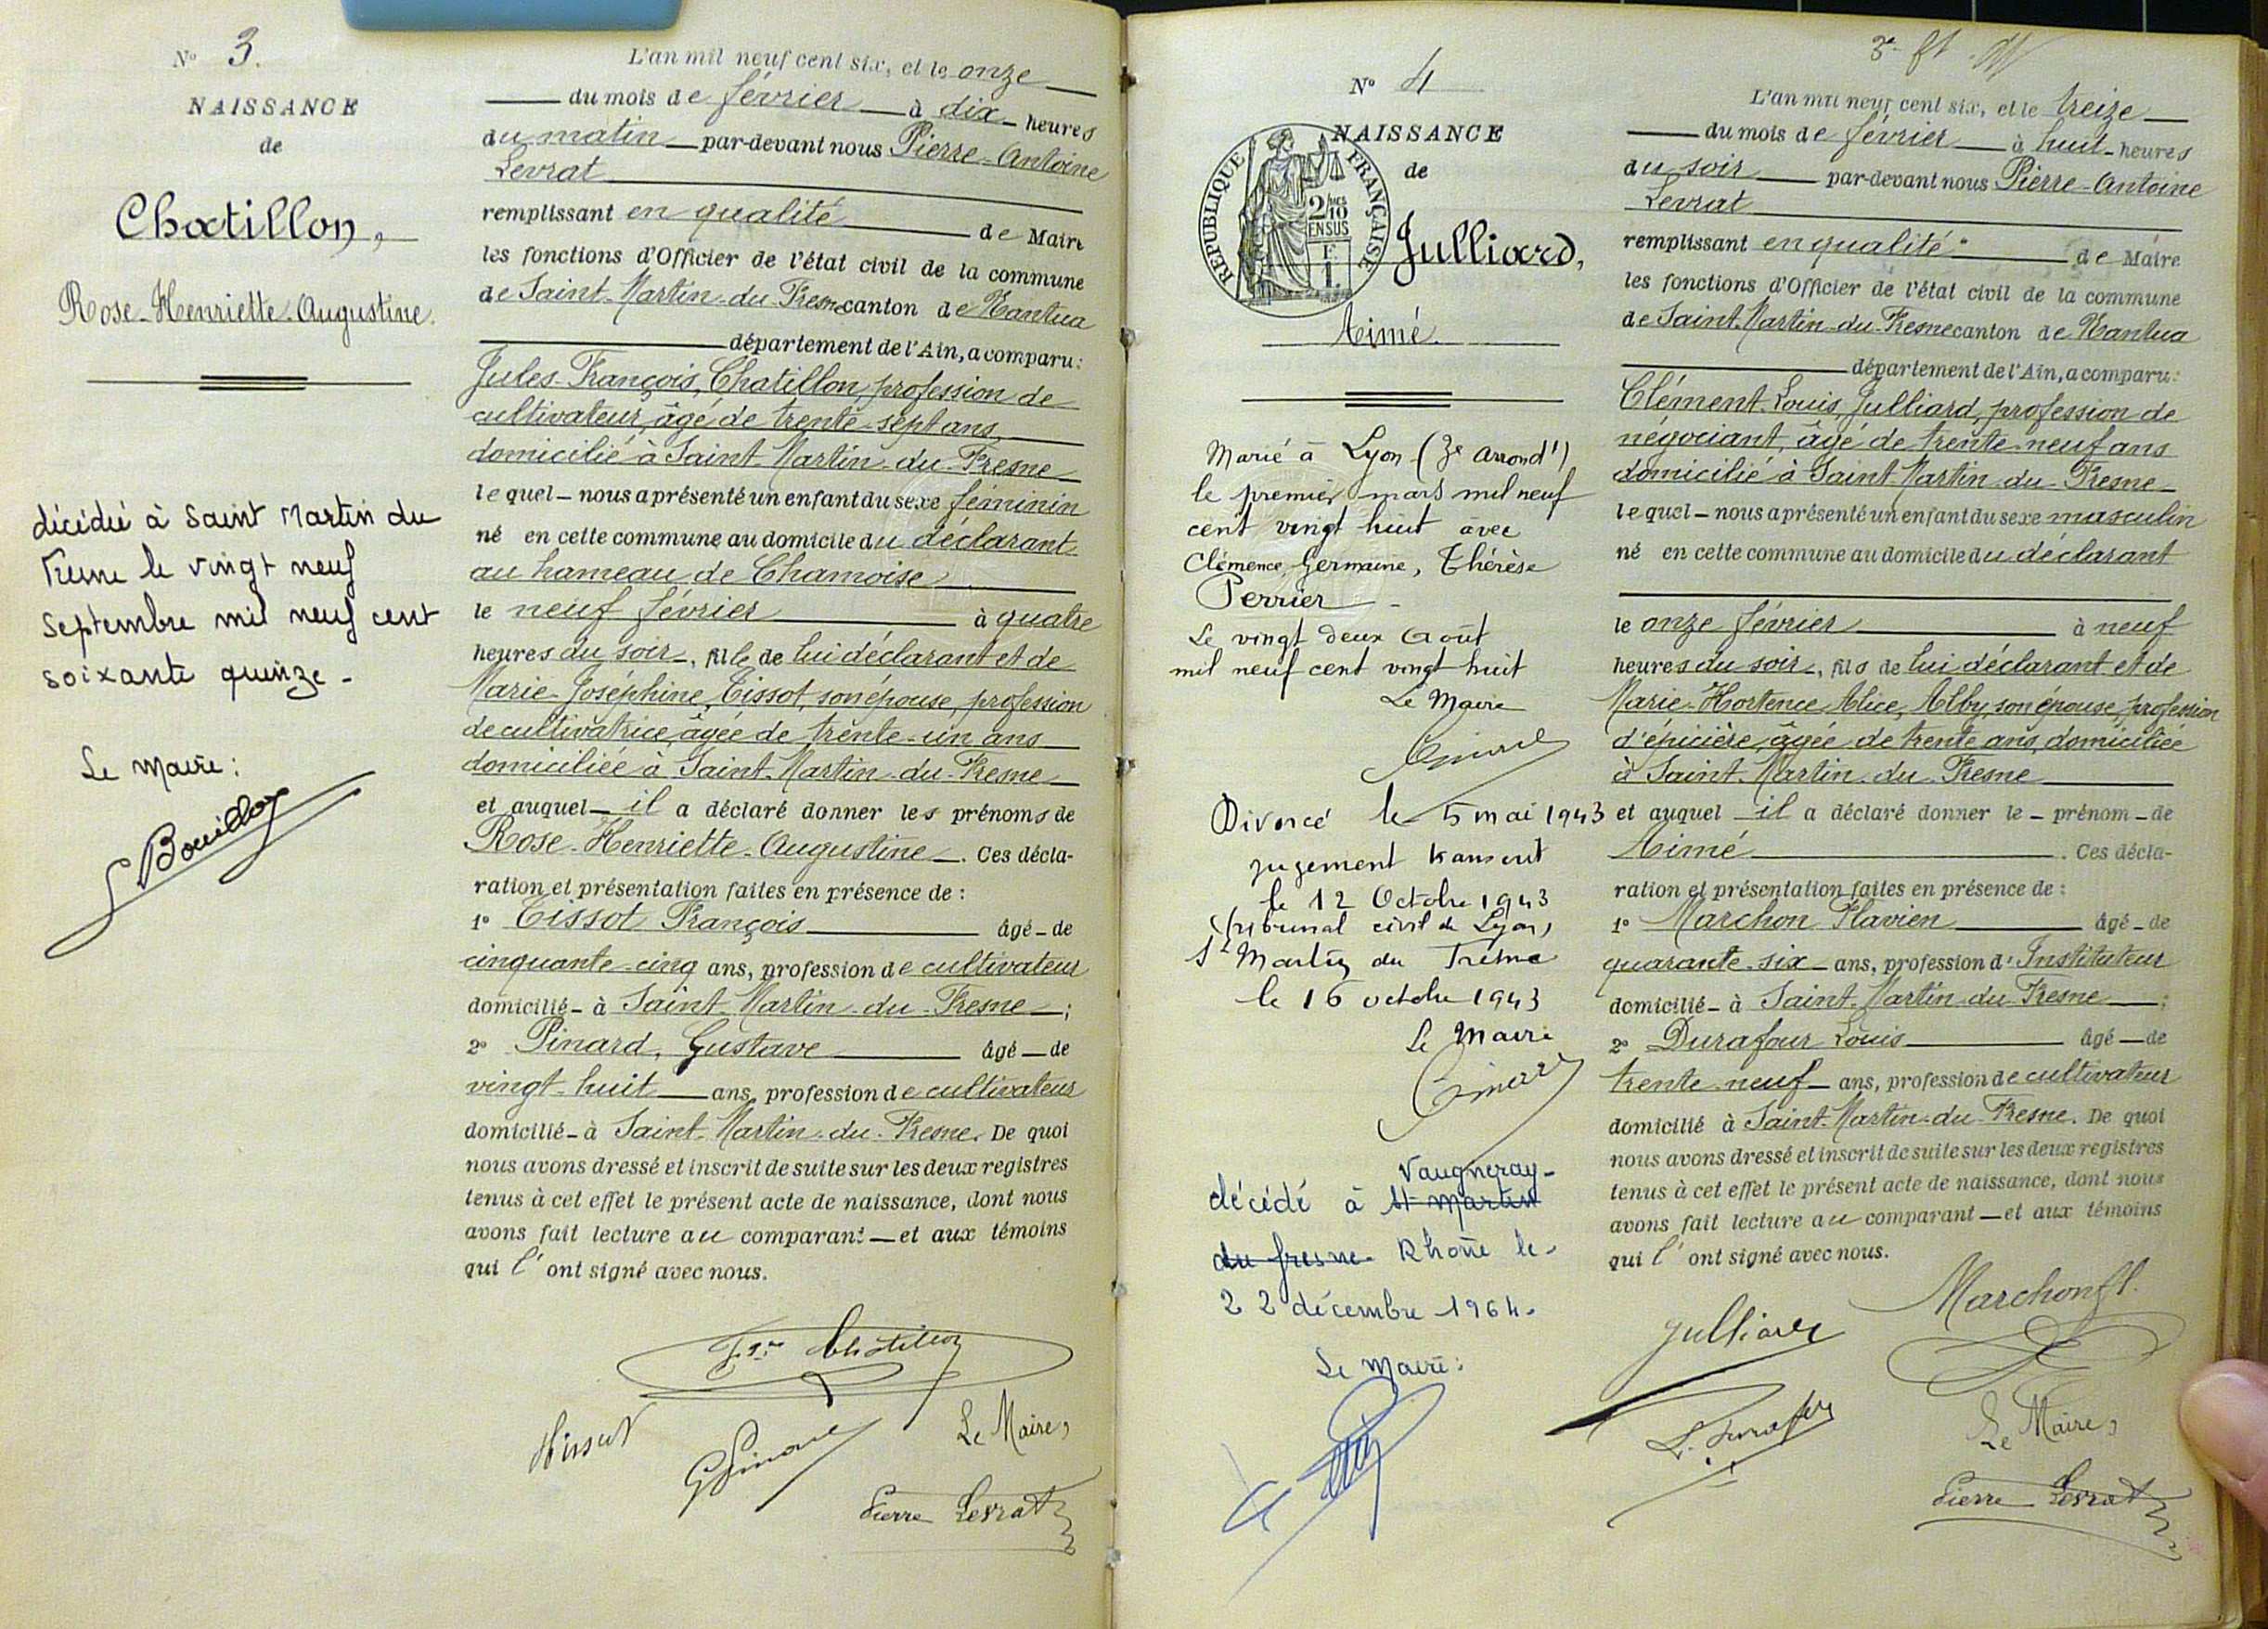 N° 3.
NAISSANCE
de
Chatillon,
Rose-Henriette-Augustine.
décédée à Saint Martin du
Fresne le vingt neuf
Septembre mil neuf cent
soixante quinze -
Le Maire :
G Bouilloz
L'an mil neuf cent six, et le onze
du mois de février à dix heures
du matin par-devant nous Pierre-Antoine
Levrat
remplissant en qualité de Maire
les fonctions d'Officier de l'état civil de la commune
de Saint-Martin-du-Fresne canton de Nantua
département de l'Ain, a comparu :
Jules-François, Chatillon, profession de
cultivateur, âgé de trente-sept ans,
domicilié à Saint-Martin-du-Fresne
le quel - nous a présenté un enfant du sexe féminin
né en cette commune au domicile du déclarant
au hameau de Chamoise
le neuf février à quatre
heures du soir, fille de lui déclarant et de
Marie-Joséphine, Tissot, son épouse, profession
de cultivatrice, âgée de trente-un ans
domiciliée à Saint-Martin-du-Fresne
et auquel il a déclaré donner les prénoms de
Rose-Henriette-Augustine. Ces décla-
ration et présentation faites en présence de :
1° Tissot François âgé - de
cinquante-cinq ans, profession de cultivateur
domicilié - à Saint-Martin-du-Fresne ;
2° Pinard, Gustave âgé - de
vingt-huit ans, profession de cultivateur
domicilié - à Saint-Martin-du-Fresne. De quoi
nous avons dressé et inscrit de suite sur les deux registres
tenus à cet effet le présent acte de naissance, dont nous
avons fait lecture au comparant - et aux témoins
qui l' ont signé avec nous.
Chatillon
Tissot
G Pinard
Le Maire,
Pierre Levrat
N° 4
NAISSANCE
de
REPUBLIQUE FRANÇAISE
2/10
EN SUS
F.
1.
Julliard,
Aimé.
Marié à Lyon (3e arrondt)
le premier mars mil neuf
cent vingt huit avec
Clémence, Germaine, Thérèse
Perrier -
Le vingt deux Août
mil neuf cent vingt huit
Le Maire
Divorcé le 5 mai 1943
jugement transcrit
le 12 Octobre 1943
(tribunal civil de Lyon)
St Martin du Fresne
le 16 octobre 1943
Le Maire
Vaugneray -
décédé à St Martin
du fresne Rhône le
22 décembre 1964.
Le Maire :
L'an mil neuf cent six, et le treize
du mois de février à huit heures
du soir par-devant nous Pierre-Antoine
Levrat
remplissant en qualité de Maire
les fonctions d'Officier de l'état civil de la commune
de Saint-Martin-du-Fresne canton de Nantua
département de l'Ain, a comparu :
Clément-Louis, Julliard, profession de
négociant, âgé de trente-neuf ans
domicilié à Saint-Martin-du-Fresne
le quel - nous a présenté un enfant du sexe masculin
né en cette commune au domicile du déclarant
le onze février à neuf
heures du soir, fils de lui déclarant et de
Marie-Hortence Alice, Alby, son épouse, profession
d'épicière, âgée de trente ans, domiciliée
à Saint-Martin-du-Fresne
et auquel il a déclaré donner le - prénom - de
Aimé. Ces décla-
ration et présentation faites en présence de :
1° Marchon Flavien âgé - de
quarante-six ans, profession d'Instituteur
domicilié - à Saint-Martin-du-Fresne ;
2° Durafour Louis âgé - de
trente-neuf ans, profession de cultivateur
domicilié à Saint-Martin-du-Fresne. De quoi
nous avons dressé et inscrit de suite sur les deux registres
tenus à cet effet le présent acte de naissance, dont nous
avons fait lecture au comparant - et aux témoins
qui l' ont signé avec nous.
Marchon fl.
Julliard
L. Durafour
Le Maire,
Pierre Levrat